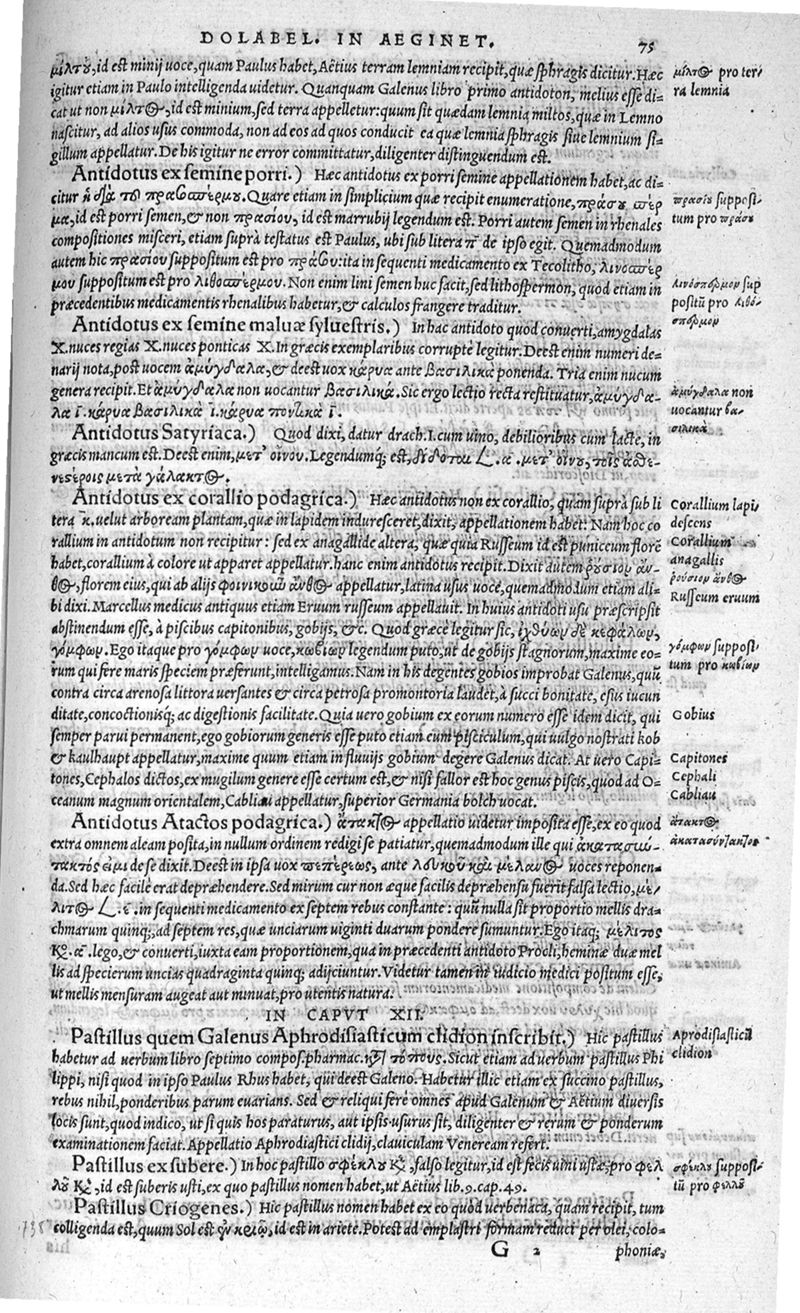 DOLABEL. IN AEGINET. 75
μίλτου, id est minij uoce, quam Paulus habet, Aëtius terram lemniam recipit, quæ sphragis dicitur. Hæc
igitur etiam in Paulo intelligenda uidetur. Quanquam Galenus libro primo antidoton, melius esse di-
cat ut non μίλτος, id est minium, sed terra appelletur: quum sit quædam lemnia miltos, quæ in Lemno
nascitur, ad alios usus commoda, non ad eos ad quos conducit ea quæ lemnia sphragis siue lemnium si-
gillum appellatur. De his igitur ne error committatur, diligenter distinguendum est.
μίλτος pro ter/
ra lemnia
Antidotus ex semine porri.) Hæc antidotus ex porri semine appellationem habet, ac di-
citur ἡ διὰ τοῦ πρασοσπέρμου. Quare etiam in simplicium quæ recipit enumeratione, πράσου σπέρ
μα, id est porri semen, & non πρασίου, id est marrubij legendum est. Porri autem semen in rhenales
compositiones misceri, etiam suprà testatus est Paulus, ubi sub litera π de ipso egit. Quemadmodum
autem hic πρασίου suppositum est pro πράσου: ita in sequenti medicamento ex Tecolitho, λινοσπέρ
μου suppositum est pro λιθοσπέρμου. Non enim lini semen huc facit, sed lithospermon, quod etiam in
præcedentibus medicamentis rhenalibus habetur, & calculos frangere traditur.
πρασίου supposi/
tum pro πράσου
λινόσπερμον sup
positũ pro λιθό-
σπερμον
Antidotus ex semine maluæ syluestris.) In hac antidoto quod conuerti, amygdalas
X. nuces regias X. nuces ponticas X. In græcis exemplaribus corruptè legitur. Deest enim numeri de-
narij nota, post uocem ἀμύγδαλα, & deest uox κάρυα ante βασιλικὰ ponenda. Tria enim nucum
genera recipit. Et ἀμύγδαλα non uocantur βασιλικά. Sic ergo lectio recta restituatur, ἀμύγδα-
λα ί. κάρυα βασιλικὰ ί. κάρυα ποντικὰ ί.
ἀμύγδαλα non
uocantur βα-
σιλικὰ
Antidotus Satyríaca.) Quod dixi, datur drach. I. cum uino, debilioribus cum lacte, in
græcis mancum est. Deest enim, μετ' οἴνου. Legendumq; est, δίδοται ʆ. α. μετ' οἴνου, τοῖς ἀσθε-
νεστέροις μετὰ γάλακτος.
Antidotus ex corallio podagrica.) Hæc antidotus non ex corallio, quam suprà sub li
tera κ. uelut arboream plantam, quæ in lapidem induresceret, dixit, appellationem habet: Nam hoc co
rallium in antidotum non recipitur: sed ex anagallide altera, quæ quia Russeum id est puniceum florẽ
habet, corallium à colore ut apparet appellatur. hanc enim antidotus recipit. Dixit autem ῥούσιον ἄν-
θος, florem eius, qui ab alijs φοινικοῦν ἄνθος appellatur, latina usus uoce, quemadmodum etiam ali-
bi dixi. Marcellus medicus antiquus etiam Eruum russeum appellauit. In huius antidoti usu præscripsit
abstinendum esse, à piscibus capitonibus, gobijs, &c. Quod græcè legitur sic, ἰχθύων δὲ κεφάλων,
γόμφων. Ego itaque pro γόμφων uoce, κωβίων legendum puto, ut de gobijs stagnorum, maxime eo-
rum qui fere maris speciem præferunt, intelligamus. Nam in his degentes gobios improbat Galenus, quũ
contra circa arenosa littora uersantes & circa petrosa promontoria laudet, à succi bonitate, esus iucun
ditate, concoctionisq; ac digestionis facilitate. Quia uero gobium ex eorum numero esse idem dicit, qui
semper parui permanent, ego gobiorum generis esse puto etiam eum pisciculum, qui uulgo nostrati kob
& kaulhaupt appellatur, maxime quum etiam in fluuijs gobium degere Galenus dicat. At uero Capi-
tones, Cephalos dictos, ex mugilum genere esse certum est, & nisi fallor est hoc genus piscis, quod ad O-
ceanum magnum orientalem, Cabliau appellatur, superior Germania bolch uocat.
Corallium lapi/
descens
Corallium
anagallis
ῥούσιον ἄνθος
Russeum eruum
γόμφων supposi/
tum pro κωβίων
Gobius
Capitones
Cephali
Cabliau
Antidotus Atactos podagrica.) ἄτακτος appellatio uidetur imposita esse, ex eo quod
extra omnem aleam posita, in nullum ordinem redigi se patiatur, quemadmodum ille qui ἀκατασυν-
τακτός εἰμι de se dixit. Deest in ipsa uox πεπέρεως, ante λευκοῦ καὶ μέλανος uoces reponen-
da. Sed hæc facile erat depræhendere. Sed mirum cur non æque facilis depræhensu fuerit falsa lectio, μέ-
λιτος ʆ. ε. in sequenti medicamento ex septem rebus constante: quũ nulla sit proportio mellis dra-
chmarum quinq;, ad septem res, quæ unciarum uiginti duarum pondere sumuntur. Ego itaq; μέλιτος
Κο. α. lego, & conuerti, iuxta eam proportionem, qua in præcedenti antidoto Procli, heminæ duæ mel
lis ad specierum uncias quadraginta quinq; adijciuntur. Videtur tamen in iudicio medici positum esse,
ut mellis mensuram augeat aut minuat, pro utentis natura.
ἄτακτος
ἀκατασύντακτος
IN CAPVT XII.
Pastillus quem Galenus Aphrodisiasticum clidion inscribit.) Hic pastillus
habetur ad uerbum libro septimo compos. pharmac. κατὰ τόπους. Sicut etiam ad uerbum pastillus Phi
lippi, nisi quod in ipso Paulus Rhus habet, qui deest Galeno. Habetur illic etiam ex succino pastillus,
rebus nihil, ponderibus parum euarians. Sed & reliqui fere omnes apud Galenum & Aëtium diuersis
locis sunt, quod indico, ut si quis hos paraturus, aut ipsis usurus sit, diligenter & rerum & ponderum
examinationem faciat. Appellatio Aphrodiastici clidij, clauiculam Veneream refert.
Aprodisiasticũ
clidion
Pastillus ex subere.) In hoc pastillo σφέκλου κεκ., falso legitur, id est fecis uini ustæ, pro φελ
λοῦ κεκ., id est suberis usti, ex quo pastillus nomen habet, ut Aëtius lib. 9. cap. 49.
σφέκλου supposi/
tũ pro φελλοῦ
Pastillus Críogenes.) Hic pastillus nomen habet ex eo quod uerbenaca, quam recipit, tum
colligenda est, quum Sol est ἐν κριῷ, id est in ariete. Potest ad emplastri formam reduci per olei, colo-
G 2 phoniæ,